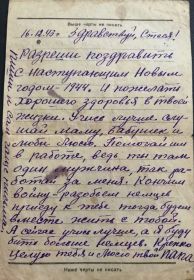 Выше черты не писать
16.12.43г Здравствуй, Стела!
Разреши поздравить
с наступающим Новым
годом 1944. И пожелать
хорошего здоровья в твоей
жизни. Учись лучше, слу
шай маму, бабушек и
люби Люсю. Помогай им
в работе, ведь ты там
один мужчина так ра-
ботай за меня. Кончим
войну - разобьем немцев
приеду к тебе тогда будем
вместе жить с тобой.
А сейчас учись лучше, а я буду
бить больнее немцев. Крепко
Целую тебя и Люсю твой Папа
Ниже черты не писать